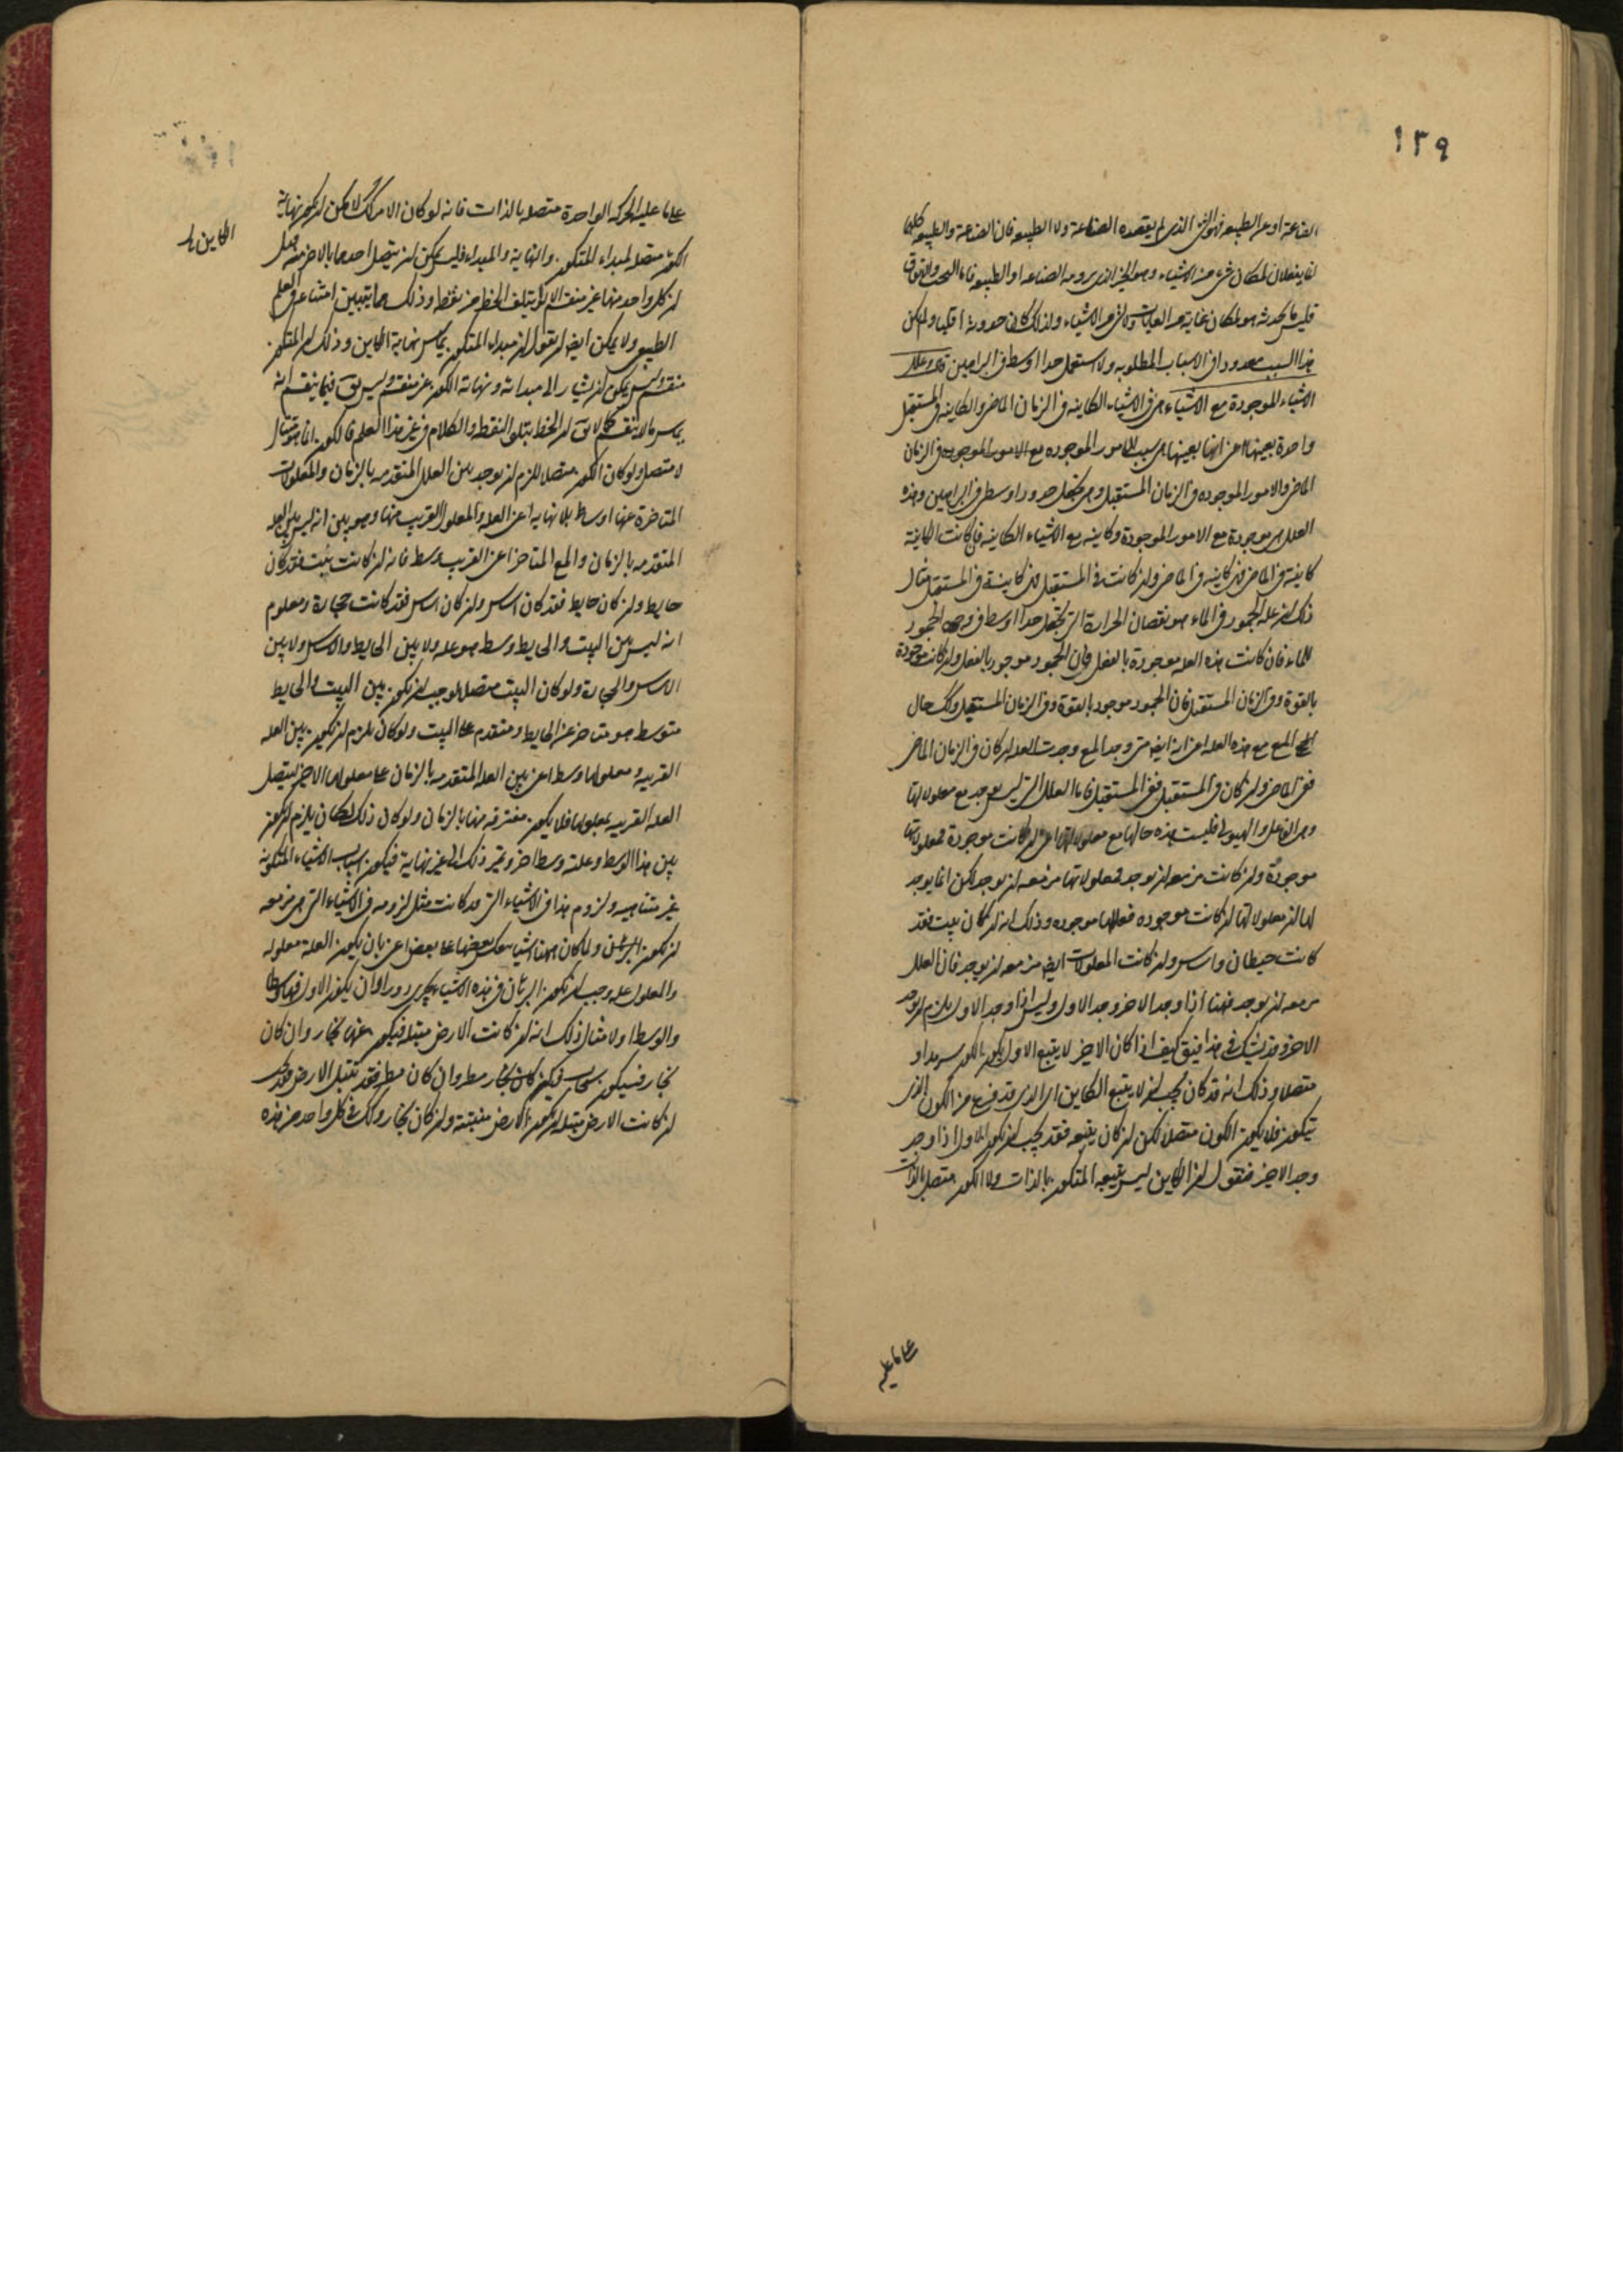 ١٢٩
الصناعة او عن الطبيعه فهو الشي الذي لم يقصده الصناعة ولا الطبيعه فان الصناعة والطبيعه كلها
انما يفعلان لمكان شي من الاشياء وهو الخير الذي يرومه الصناعه او الطبيعه فاما البخت والاتفاق
فليس ما يحدثه هو لمكان غاية من الغايات ولا لشي من الاشياء ولذلك كان حدوثه اقليا ولم يكن
هذا السبب معدودا في الاسباب المطلوبه ولا استعمل حدا اوسط في البراهين قال وعلل
الاشياء الموجودة مع الاشياء هي في الاشياء الكاينه في الزمان الماضي والكاينه في المستقبل
واحدة بعينها اعني انها بعينها هي سبب للامور الموجوده مع الامور الموجوده في الزمان
الماضي والامور الموجوده في الزمان المستقبل وهي تجعل حدودا وسطى في البراهين وهذه
العلل هي موجودة مع الامور الموجودة وكاينه مع الاشياء الكاينه فان كانت الكاينة
كاينة في الماضي فهي كاينه في الماضي وان كانت في المستقبل فهي كاينة في المستقبل مثال
ذلك ان علة الجمود في الماء هو نقصان الحرارة التي تجعل حدا اوسط في وجود الجمود
للماء فان كانت هذه العله موجودة بالفعل فان الجمود موجود بالفعل وان كانت موجودة
بالقوة وفي الزمان المستقبل فان الجمود موجود بالقوة وفي الزمان المستقبل وكك حال
المع مع هذه العله اعني انه ايضا متى وجد المع وجدت العله ان كان في الزمان الماضي
ففي الماضي وان كان في المستقبل ففي المستقبل فاما العلل التي ليس توجد مع معلولاتها
وهي الفاعل والهيولى فليست هذه حالها مع معلولاتها اعني ان كانت موجودة فمعلولاتها
موجودة وان كانت مزمعه ان توجد فمعلولاتها مزمعه ان توجد لكن انما يوجد
لها ان معلولاتها ان كانت موجوده فعللها موجوده وذلك انه ان كان بيت فقد
كانت حيطان واساس وان كانت المعلولات ايضا مزمعه ان يوجد فان العلل
مزمعه ان توجد فههنا اذا وجد الاخر وجد الاول وليس اذا وجد الاول يلزم ان يوجد
الاخر وقد يشك في هذا فيق كيف اذا كان الاخير لا يتبع الاول يكون الكون سرمدا و
متصلا وذلك انه قد كان يجب ان لا يتبع الكاين اي الذي قد فرغ من الكون الذي
يتكون فلا يكون الكون متصلا لكن ان كان يتبعه فقد يجب ان يكون الاول اذا وجد
وجد الاخير فنقول ان الكاين ليس يتبعه المتكون بالذات ولا الكون متصل بالذات
على ما عليه
على ما عليه الحركه الواحدة متصله بالذات فانه لو كان الامر كك لامكن ان يكون نهاية
الكاين
الكون متصله لمبداء المتكون والنهاية والمبداء فليس يمكن ان يتصل احدهما بالاخر من قبل
ان كل واحد منها غير منقسم ولا ياتلف الخط من نقط وذلك مما يتبين امتناعه في العلم
الطبيعي ولا يمكن ايضا ان نقول ان مبداء المتكون يماس نهاية الكاين وذلك ان المتكون
منقسم وليس يمكن ان يشار الى مبدائه ونهاية الكون غير منقسم وليس يق فيما ينقسم انه
يماس ما لا ينقسم كما لا يق ان الخط يتلو النقط والكلام في غير هذا العلم فالكون انما هو متتال
لا متصل ولو كان الكون متصلا للزم ان يوجد بين العلل المتقدمه بالزمان والمعلولات
المتاخرة عنها اوساط بلا نهايه اعني العله والمعلول القريب منها وهو بين انه ليس بين العله
المتقدمه بالزمان والمع المتاخر اعني القريب وسط فانه ان كانت بيت فقد كان
حايط وان كان حايط فقد كان اساس وان كان اساس فقد كانت حجارة ومعلوم
انه ليس بين البيت والحايط وسط هو عله ولا بين الحايط والاساس ولا بين
الاساس والحجارة ولو كان البيت متصلا لوجب ان يكون بين البيت والحايط
متوسط هو متاخر عن الحايط ومتقدم على البيت ولو كان يلزم ان يكون بين العله
القريبه ومعلولها وسط اعني بين العله المتقدمه بالزمان على معلولها الاخير ليتصل
العله القريبه بمعلولها فلا يكون مفترقه منها بالزمان ولو كان ذلك لكان يلزم ان يكون
بين هذا الوسط وعلته وسط اخر ويمر ذلك الى غير نهاية فيكون اسباب الاشياء المتكونة
غير متناهيه ولزوم هذا في الاشياء التي قد كانت مثل لزومه في الاشياء التي هي مزمعه
ان تكون البرهان ولما كان ههنا اشياء ينعكس بعضها على بعض اعني بان يكون العلة معلوله
والمعلول عله وجب ان يكون البرهان في هذه الاشياء يجري دورا وان يكون الاول فيها وسطا
والوسط اولا مثال ذلك انه ان كانت الارض مبتله فيكون عنها بخار وان كان
بخار فسيكون سحاب فيكون كان بخار مطر وان كان مطر فقد تبتل الارض فقد يجب
ان كانت الارض مبتله ان يكون الارض مبتلة وان كان بخار وكك في كل واحد من هذه